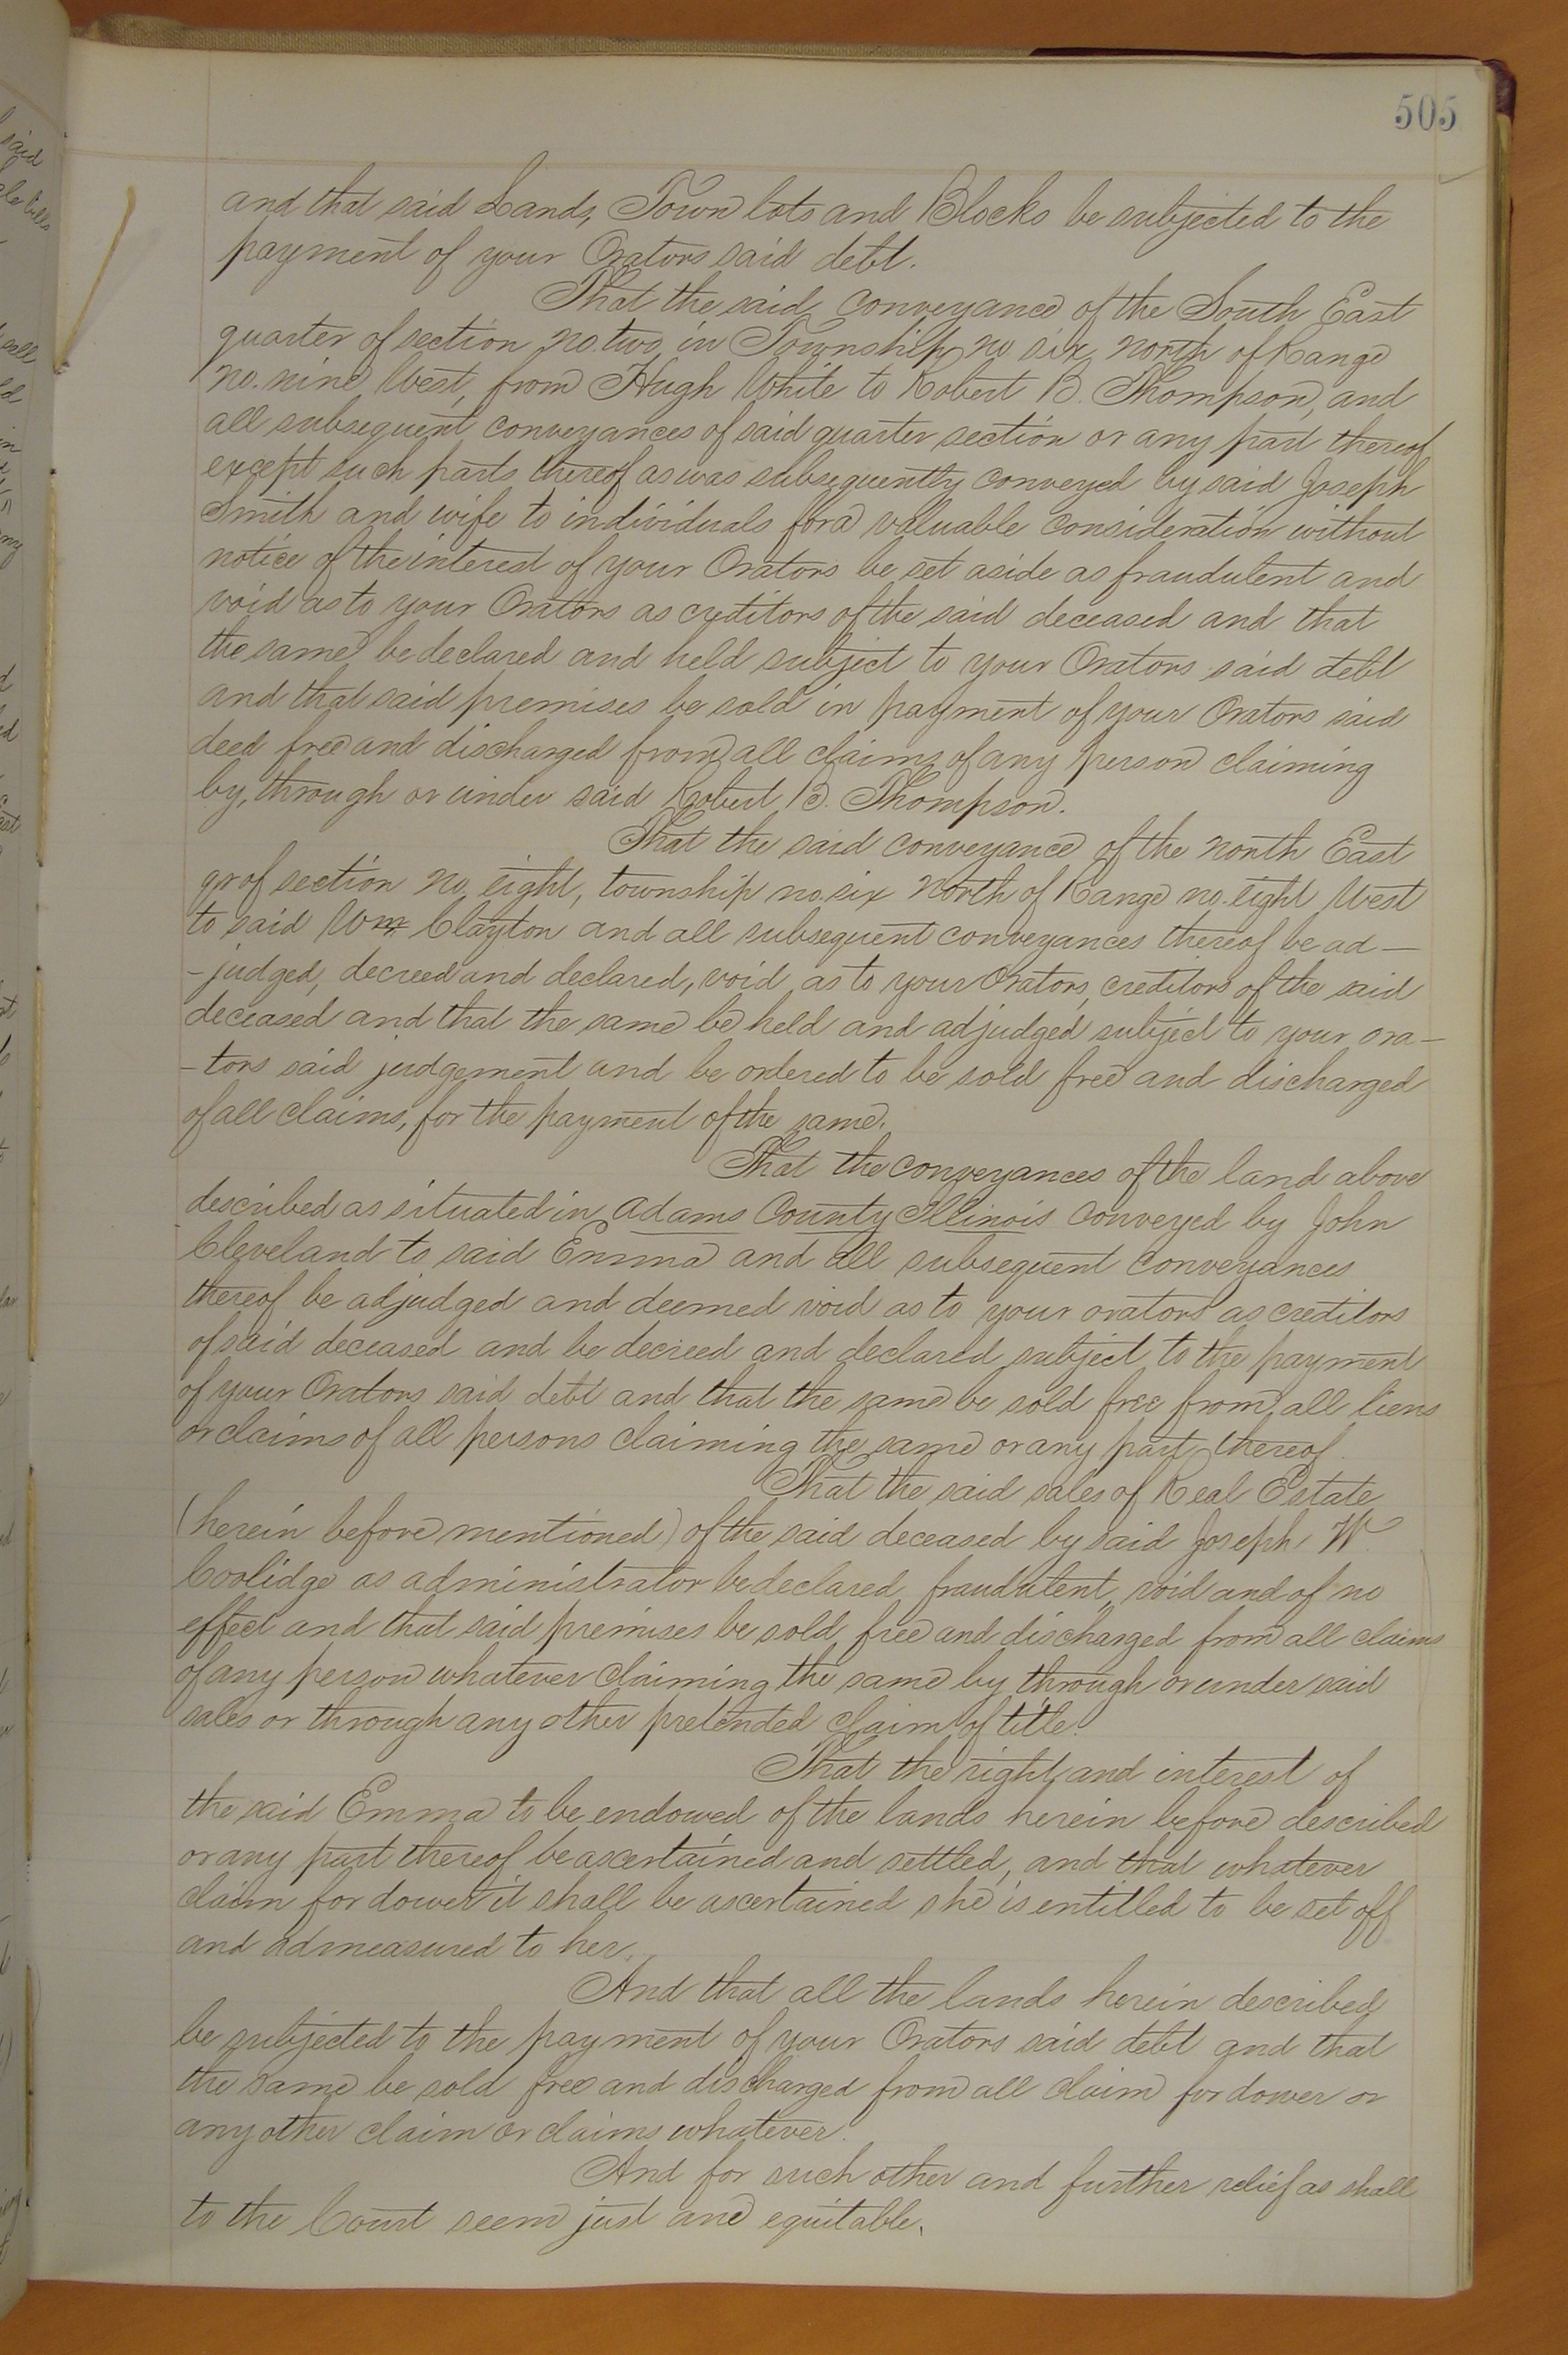 505
and that said Lands, Town lots and Blocks be subjected to the
payment of your Orators said debt.
That the said conveyance of the South East
quarter of section no. two in Township no six north of Range
no. nine West, from Hugh White to Robert B. Thompson, and
all subsequent conveyances of said quarter section or any part thereof,
except such parts thereof as was subsequently conveyed by said Joseph
Smith and wife to individuals for a valuable consideration without
notice of the interest of your Orators be set aside as fraudulent and
void as to your Orators as creditors of the said deceased and that
the same be declared and held subject to your Orators said debt
and that said premises be sold in payment of your Orators said
deed free and discharged from all claims of any person claiming
by, through or under said Robert B. Thompson.
That the said conveyance of the north East
qr of section no. eight, township no. six North of Range no. eight West
to said Wm Clayton and all subsequent conveyances thereof be ad—
—judged, decreed and declared, void as to your Orators, creditors of the said
deceased and that the same be held and adjudged subject to your ora—
—tors said judgement and be ordered to be sold free and discharged
of all claims, for the payment of the same.
That the conveyances of the land above
described as situated in Adams County Illinois conveyed by John
Cleveland to said Emma and all subsequent conveyances
thereof be adjudged and deemed void as to your orators as creditors
of said deceased and be decreed and declared subject to the payment
of your Orators said debt and that the same be sold free from all liens
or claims of all persons claiming the same or any part thereof.
That the said sales of Real Estate
(herein before mentioned) of the said deceased by said Joseph W.
Coolidge as administrator be declared fraudulent, void and of no
effect and that said premises be sold free and discharged from all claims
of any person whatever claiming the same by through or under said
sales or through any other pretended claim of title.
That the right and interest of
the said Emma to be endowed of the lands herein before described
or any part thereof be ascertained and settled, and that whatever
claim for dower it shall be ascertained she is entitled to be set off
and admeasured to her.
And that all the lands herein described
be subjected to the payment of your Orators said debt and that
the same be sold free and discharged from all claim for dower or
any other claim or claims whatever.
And for such other and further relief as shall
to the Court seem just and equitable.